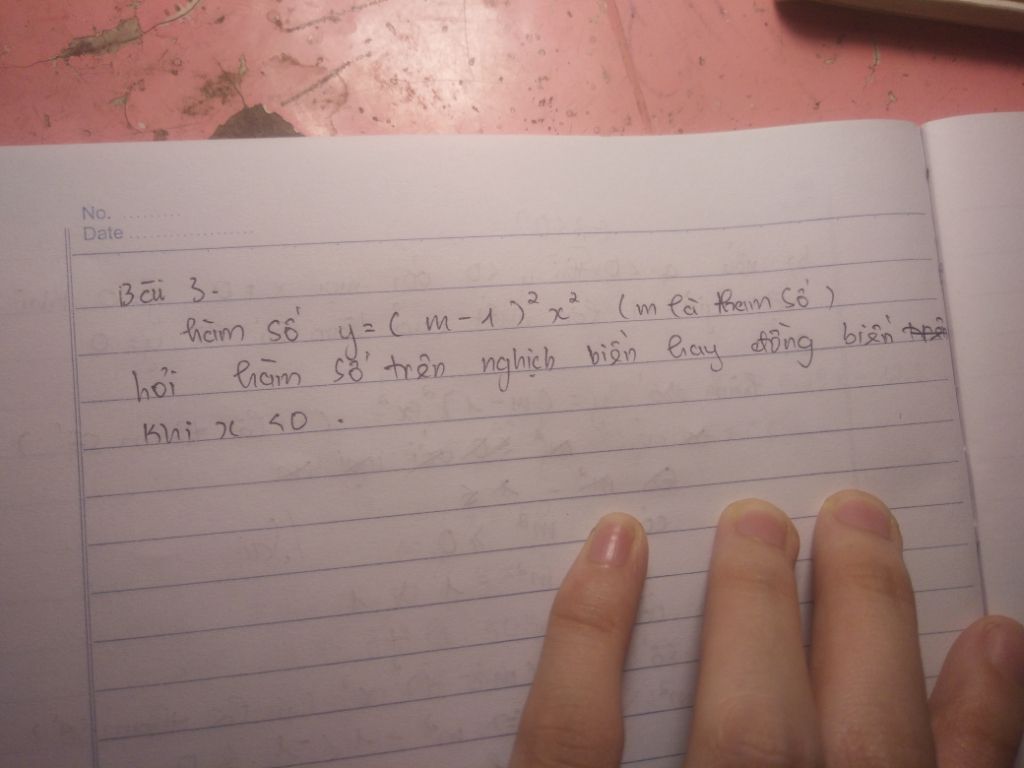 No. .........
Date ...................
Bài 3.
hàm số y = ( m - 1 )² x² (m là tham số)
hỏi hàm số trên nghịch biến hay đồng biến
khi x < 0 .